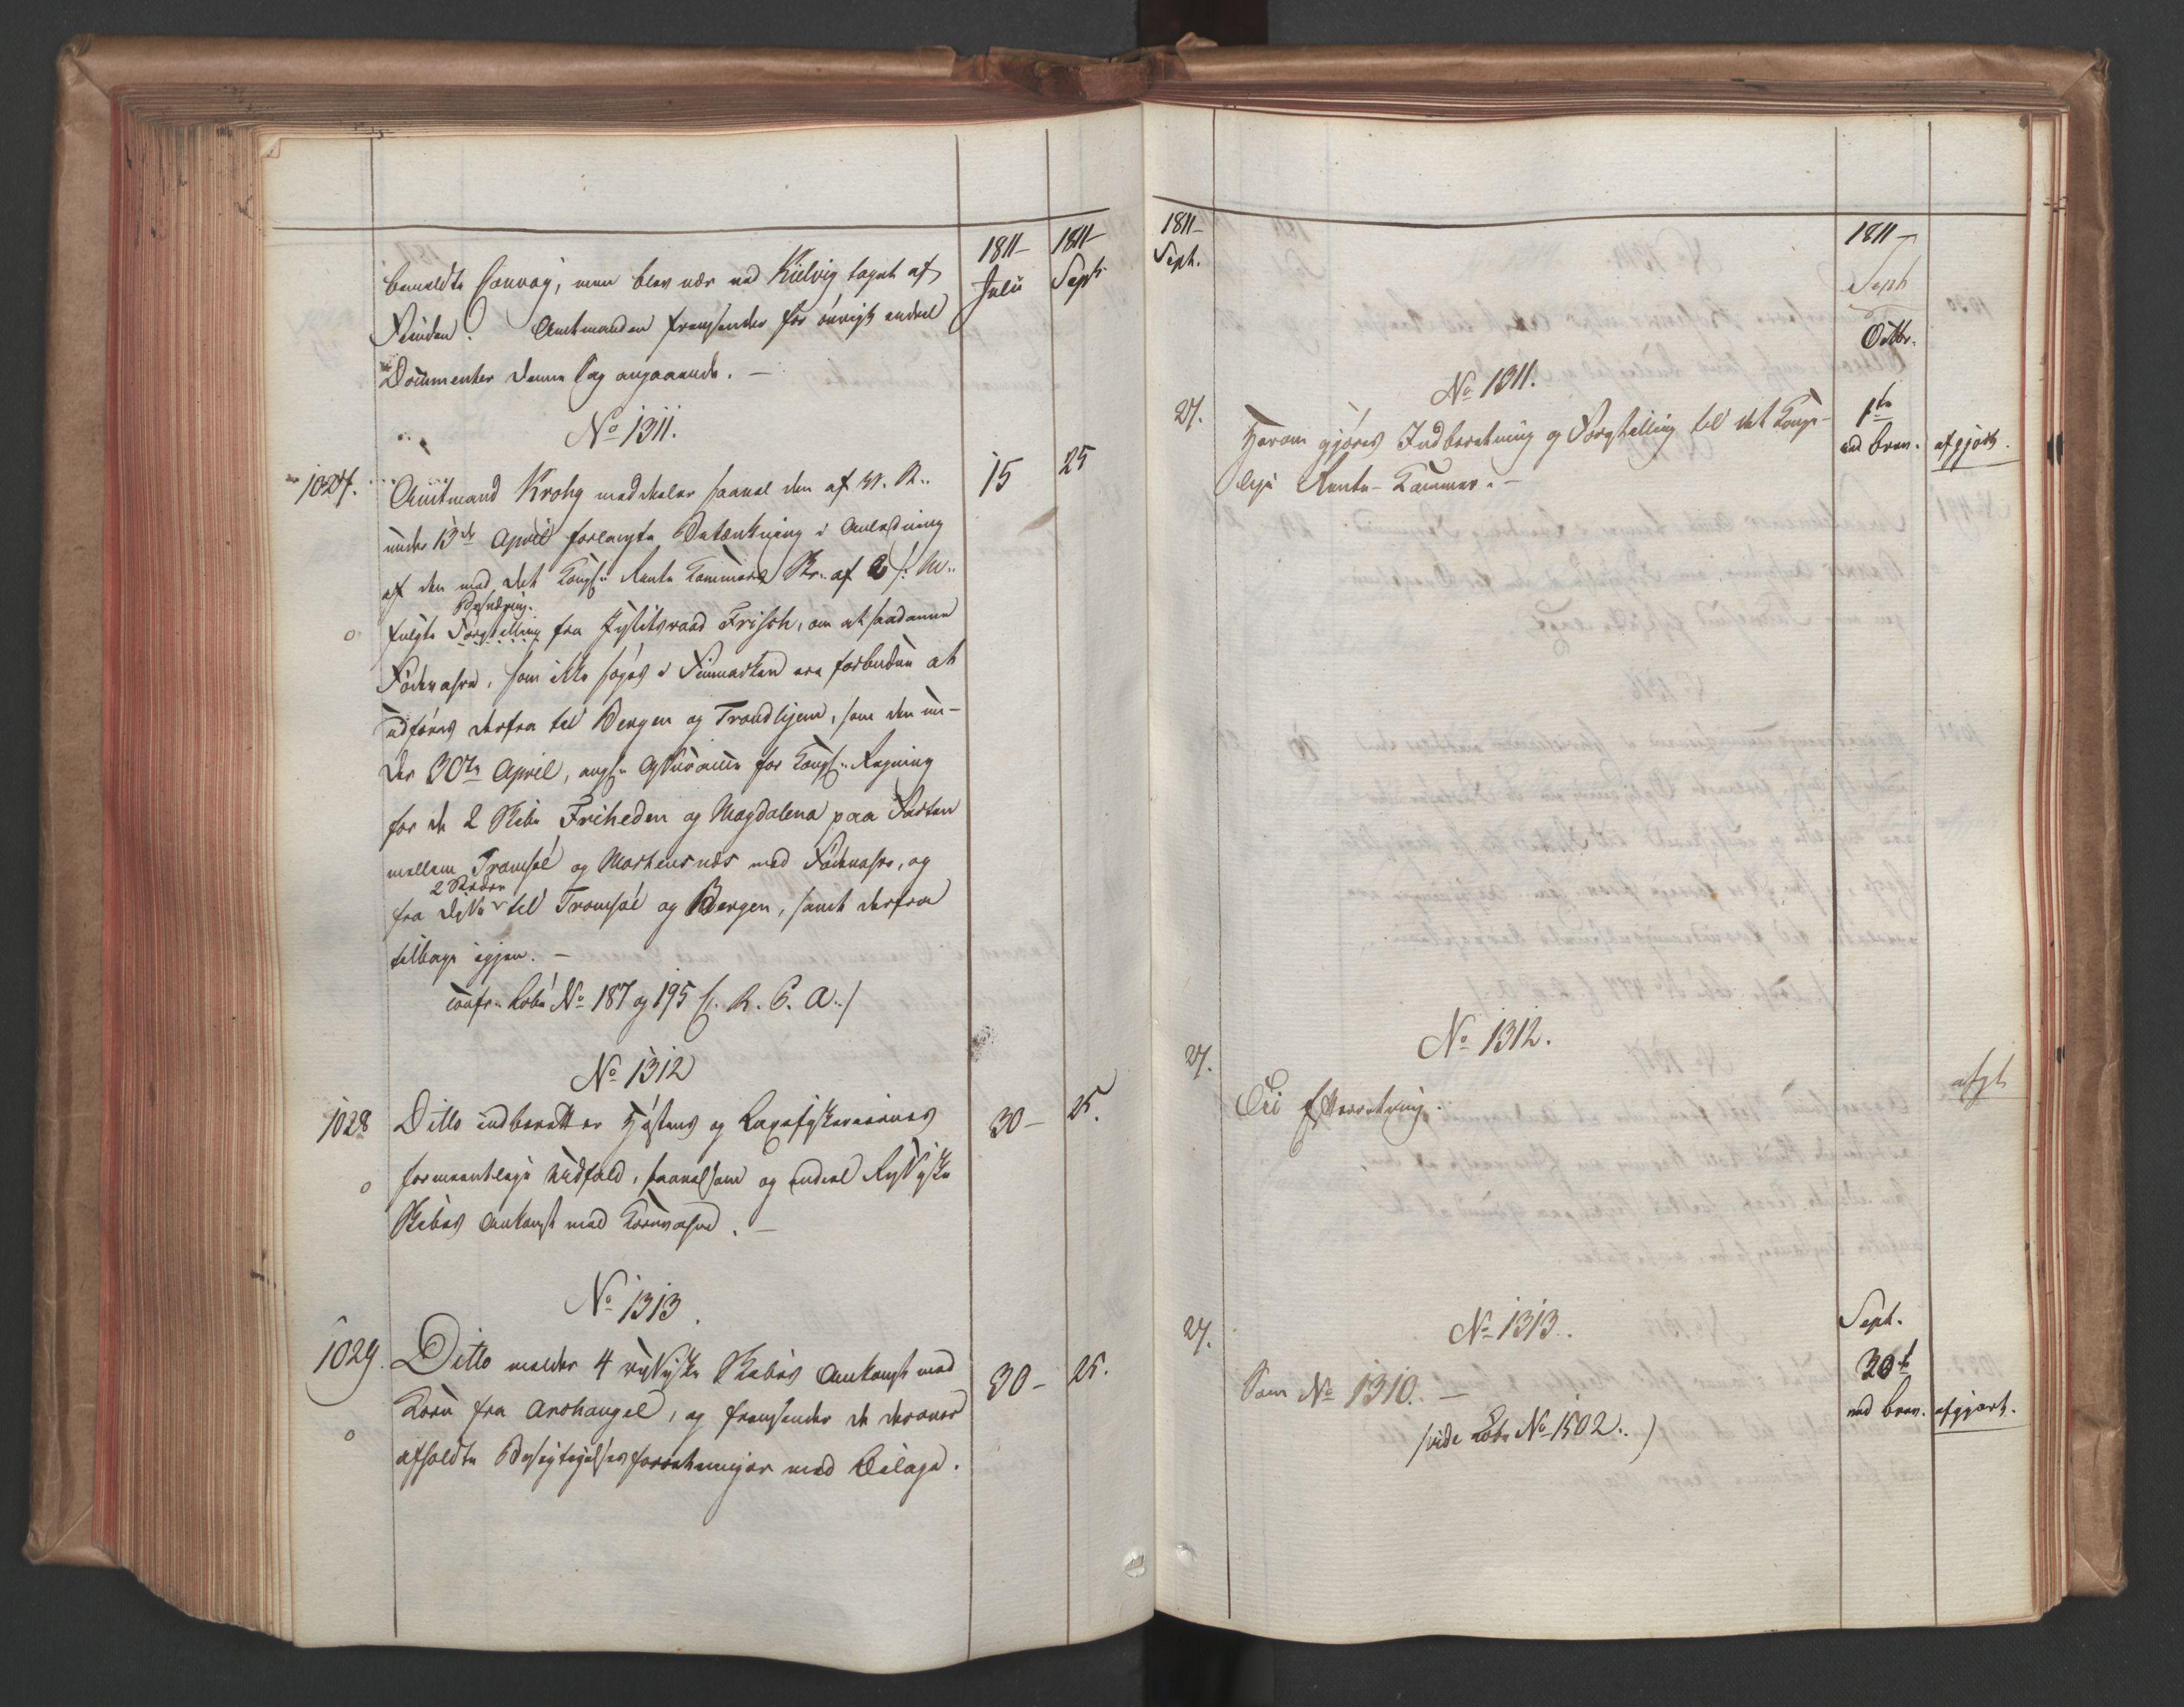 1811 -
Julii
1811 -
Sept.
bemeldte Convoy, men blev nær ved Kielvig tagen af
Fienden. Amtmanden fremsender for øvrigt endeel
Documenter denne Sag angaaende. -
No 1311.
1027.
Amtmand Krohg meddeler saavel den af
15
25
under 13de April forlangte Betænkning i Anledning
af den med det Kongl. Rente Kammers Skr. af
Besværing.
fulgte Forestilling fra Justitsraad Frisch, om at saadanne
Födevahre, som ikke søges i Finmarken ere forbudne at
udføres derfra til Bergen og Trondhjem, som den un-
der 30te April, angl. Assurance for Kongl. Regning
for de 2 Skibe Friheden og Magdalena paa Farten
mellem Tromsøe og Mortensnæs med Födevahre, og
2 Steder
fra disse til Tromsøe og Bergen, samt derfra
tilbage igjen. -
confr. Lobe No 187 og 195 /: R. C. A. :/
No 1312
1028
Ditto indberetter Høstens og Laxefiskeriernes
30 -
25.
formeentlige Udfald, saavelsom og endeel Russiske
Skibes Ankomst med Kornvahre. -
No 1313.
1029.
Ditto melder 4 russiske Skibes Ankomst med
30 -
25.
Korn fra Archangel, og fremsender de derover
afholdte Besigtigelsesforretninger med Bilage.
1811 -
Sept.
1811 -
Sept
Octbr.
No 1311.
27.
Herom gjøres Indberetning og Forestilling til det Konge-
1te
ved brev.
afgjort.
lige Rente-Kammer. -
No 1312.
27.
Til Efterretning.
afgt
No 1313.
27.
Sept.
Som No 1310. -
30te
ved brev.
afgjort.
/vide Lobe No 1502. /